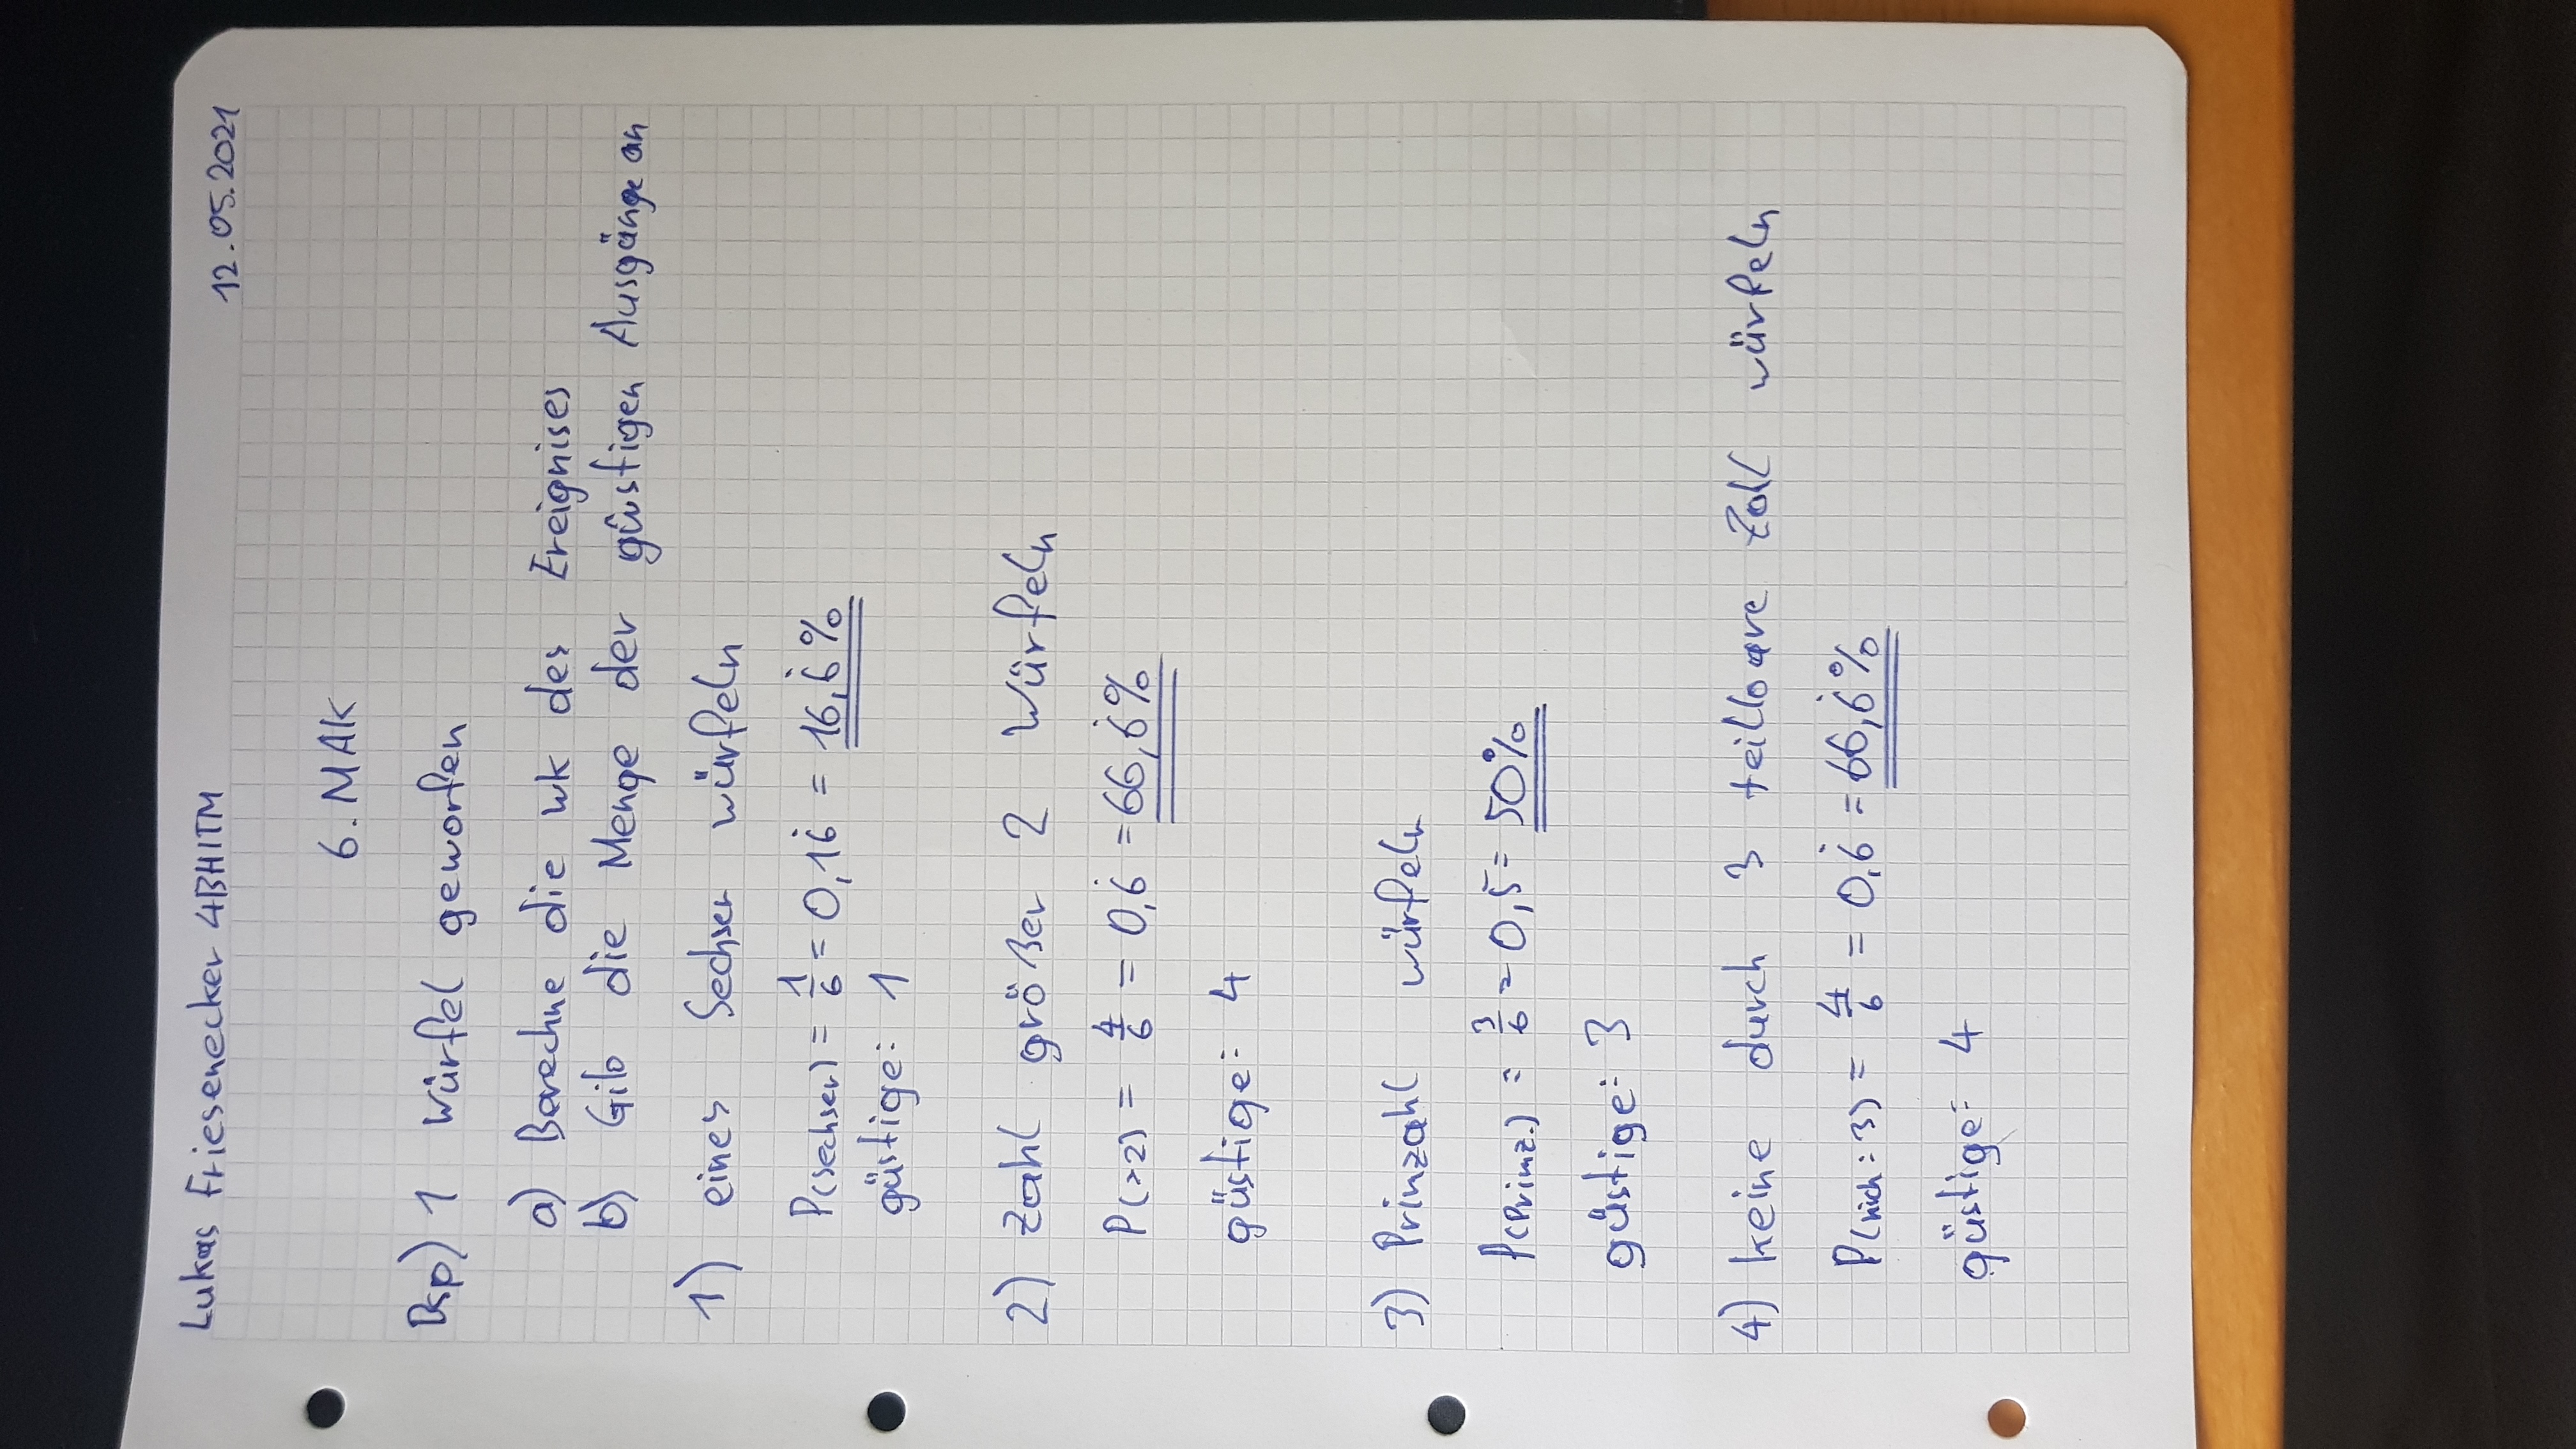 Lukas Friesenecker 4BHITM
12.05.2021
6. MAK
Bsp) 1 Würfel geworfen
a) Berechne die wk des Ereignises
b) Gib die Menge der güstigen Ausgänge an
1) eines Sechser würfeln
P(sechser) = 1/6 = 0,16̇ = 16,6̇%
güstige: 1
2) Zahl größer 2 Würfeln
P(>2) = 4/6 = 0,6̇ = 66,6̇%
güstige: 4
3) Prinzahl würfeln
P(Primz.) = 3/6 = 0,5 = 50%
güstige: 3
4) keine durch 3 teilbare Zall würfeln
P(nich:3) = 4/6 = 0,6̇ = 66,6̇%
güstige: 4